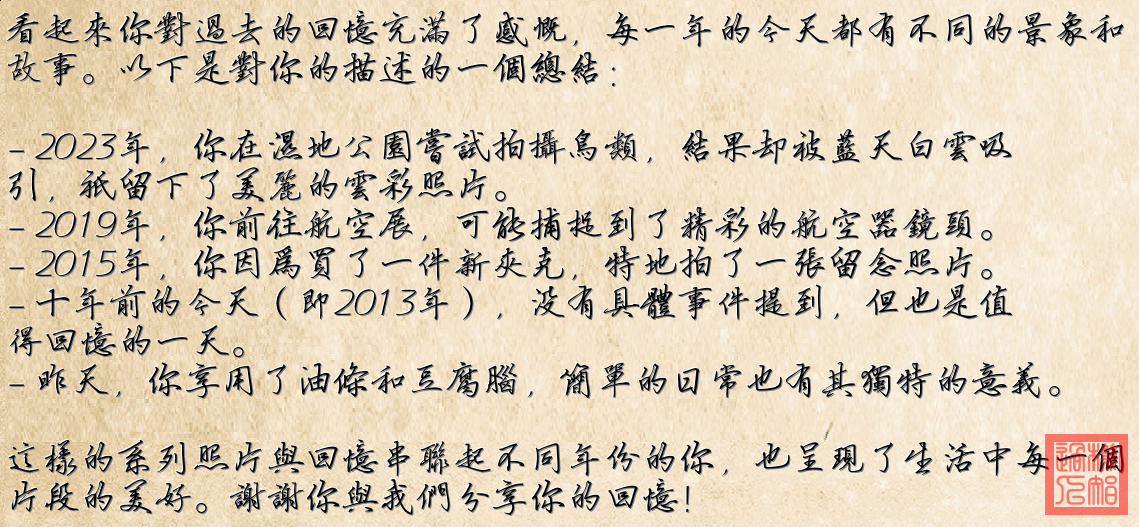 看起來你對過去的回憶充滿了感慨，每一年的今天都有不同的景象和
故事。以下是對你的描述的一個總結：
- 2023年，你在濕地公園嘗試拍攝鳥類，結果却被藍天白雲吸
引，衹留下了美麗的雲彩照片。
- 2019年，你前往航空展，可能捕捉到了精彩的航空器鏡頭。
- 2015年，你因爲買了一件新夾克，特地拍了一張留念照片。
- 十年前的今天（即2013年），没有具體事件提到，但也是值
得回憶的一天。
- 昨天，你享用了油條和豆腐腦，簡單的日常也有其獨特的意義。
這樣的系列照片與回憶串聯起不同年份的你，也呈現了生活中每一個
片段的美好。謝謝你與我們分享你的回憶！